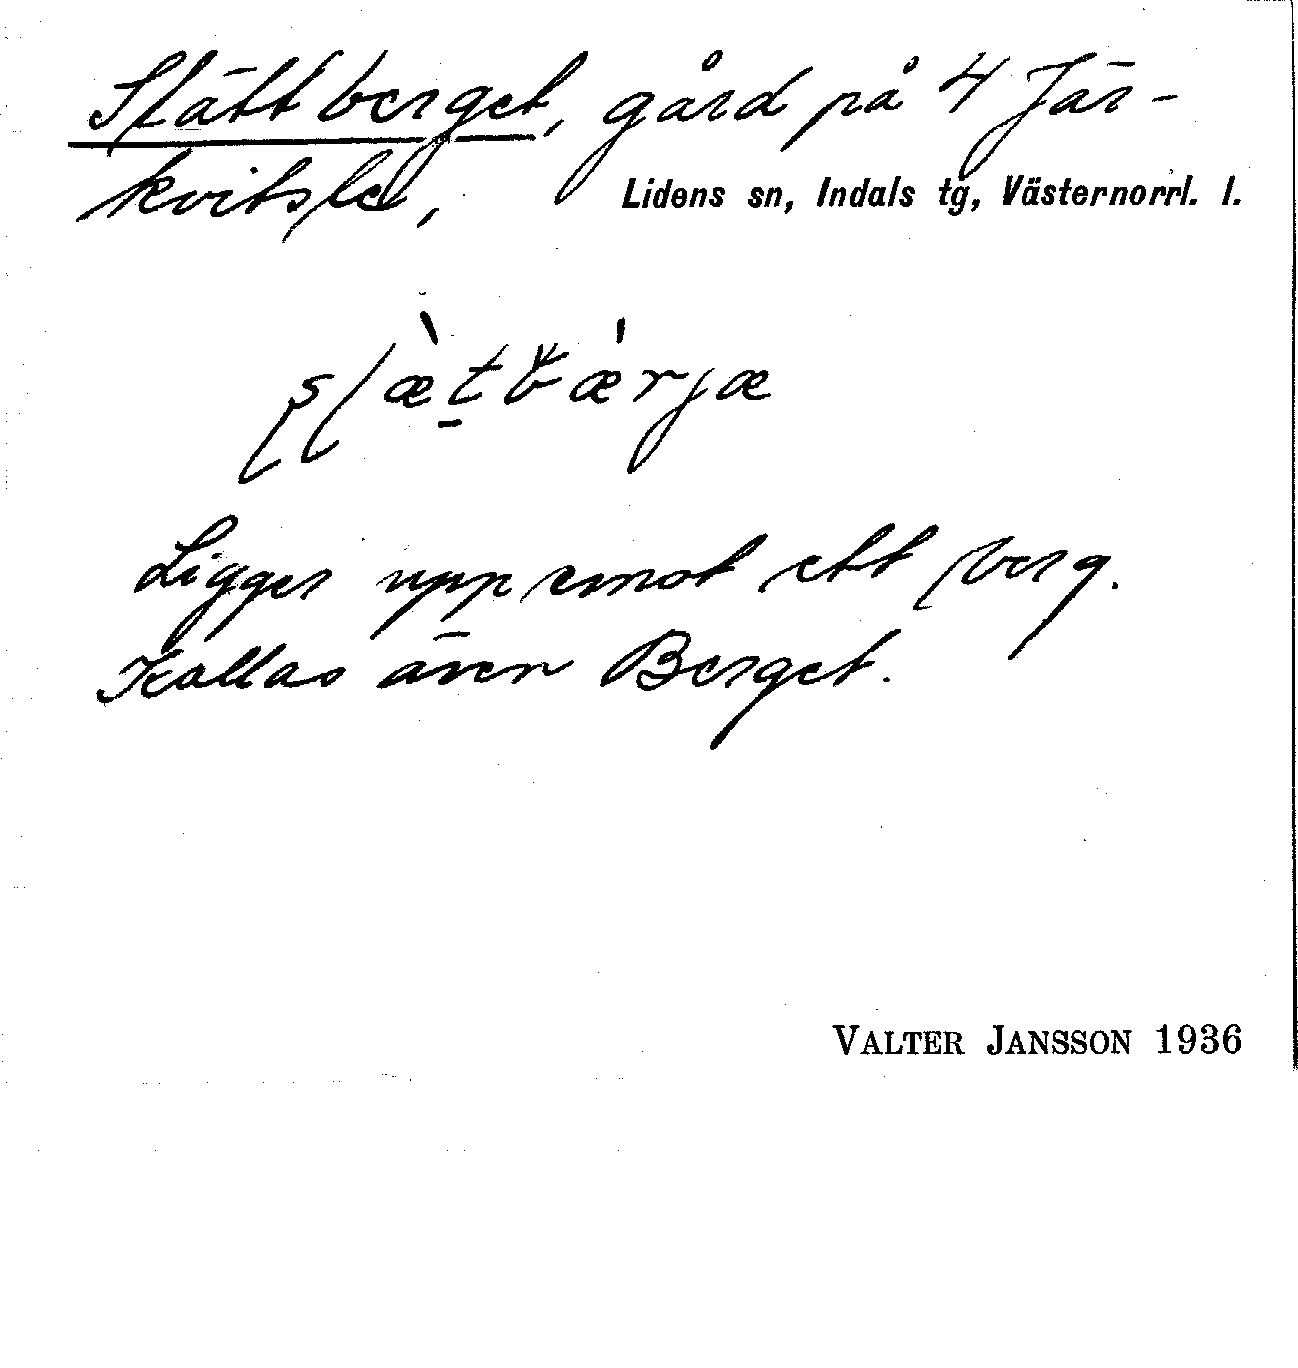 Slättberget, gård på 4 Jär-
kvitsle, Lidens sn, Indals tg, Västernorrl. l.
Ligger upp emot ett berg.
Kallas även Berget.
VALTER JANSSON 1936